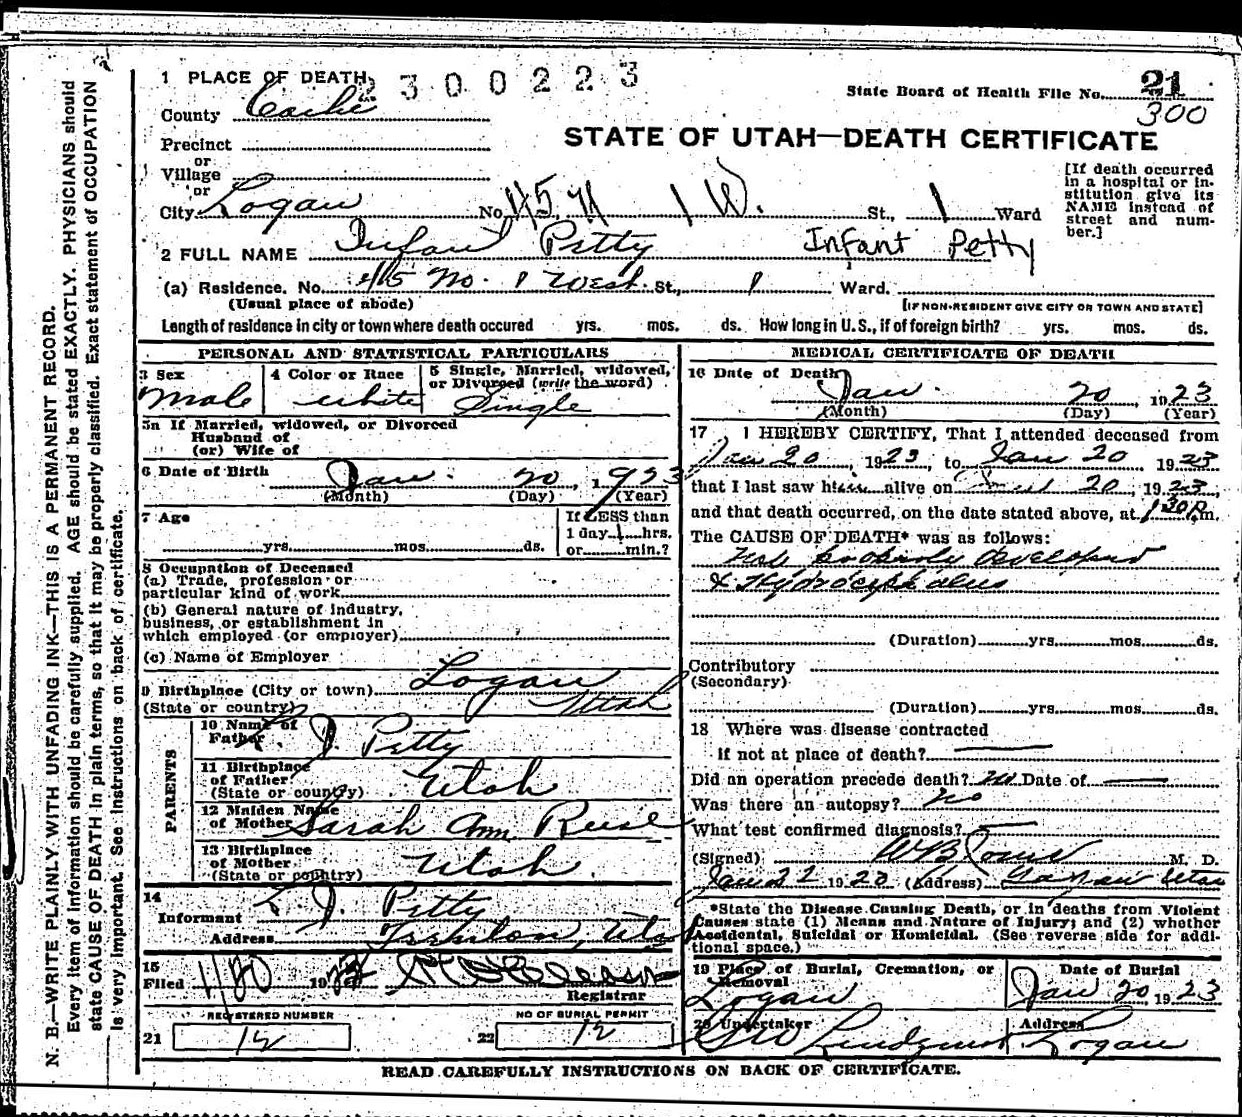 1 PLACE OF DEATH 2300223
State Board of Health File No. 21
300
County Cache
STATE OF UTAH—DEATH CERTIFICATE
Precinct
or
Village
or
City Logan No. 415 N 1 W. St., 1 Ward
[If death occurred
in a hospital or in-
stitution give its
NAME instead of
street and num-
ber.]
2 FULL NAME Infant Petty Infant Petty
(a) Residence. No. 415 No. 1 West. St., 1 Ward.
(Usual place of abode) [IF NON-RESIDENT GIVE CITY OR TOWN AND STATE]
Length of residence in city or town where death occured yrs. mos. ds. How long in U. S., if of foreign birth? yrs. mos. ds.
PERSONAL AND STATISTICAL PARTICULARS
3 Sex
Male
4 Color or Race
White
5 Single, Married, widowed,
or Divorced (write the word)
Single
5a If Married, widowed, or Divorced
Husband of
(or) Wife of
6 Date of Birth Jan. 20, 1923
(Month) (Day) (Year)
7 Age
yrs. mos. ds.
If LESS than
1 day 1 hrs.
or min.?
8 Occupation of Deceased
(a) Trade, profession or
particular kind of work
(b) General nature of industry,
business, or establishment in
which employed (or employer)
(c) Name of Employer
9 Birthplace (City or town) Logan
(State or country) Utah
PARENTS
10 Name of
Father J. Petty
11 Birthplace
of Father
(State or county) Utah
12 Maiden Name
of Mother Sarah Ann Reese
13 Birthplace
of Mother
(State or country) Utah.
14
Informant J. Petty
Address Trenton, Utah
15
Filed 1/30 192
Registrar
REGISTERED NUMBER
21 12
NO OF BURIAL PERMIT
22 12
MEDICAL CERTIFICATE OF DEATH
16 Date of Death
Jan. 20, 1923
(Month) (Day) (Year)
17 I HEREBY CERTIFY, That I attended deceased from
Jan 20, 1923, to Jan 20 1923
that I last saw him alive on Jan 20, 1923,
and that death occurred, on the date stated above, at 1 30 P.m.
The CAUSE OF DEATH* was as follows:
Not properly developed
& Hydrocephalus
(Duration) yrs. mos. ds.
Contributory
(Secondary)
(Duration) yrs. mos. ds.
18 Where was disease contracted
if not at place of death?
Did an operation precede death? no Date of
Was there an autopsy? no
What test confirmed diagnosis?
(Signed) M. D.
Jan 22 1923 (Address) Logan Utah
*State the Disease Causing Death, or in deaths from Violent
Causes state (1) Means and Nature of Injury; and (2) whether
Accidental, Suicidal or Homicidal. (See reverse side for addi-
tional space.)
19 Place of Burial, Cremation, or
Removal
Logan
Date of Burial
Jan 20 1923
20 Undertaker
Lindquist
Address
Logan
READ CAREFULLY INSTRUCTIONS ON BACK OF CERTIFICATE.
N. B.—WRITE PLAINLY WITH UNFADING INK—THIS IS A PERMANENT RECORD.
Every item of information should be carefully supplied. AGE should be stated EXACTLY. PHYSICIANS should
state CAUSE OF DEATH in plain terms, so that it may be properly classified. Exact statement of OCCUPATION
is very important. See instructions on back of certificate.